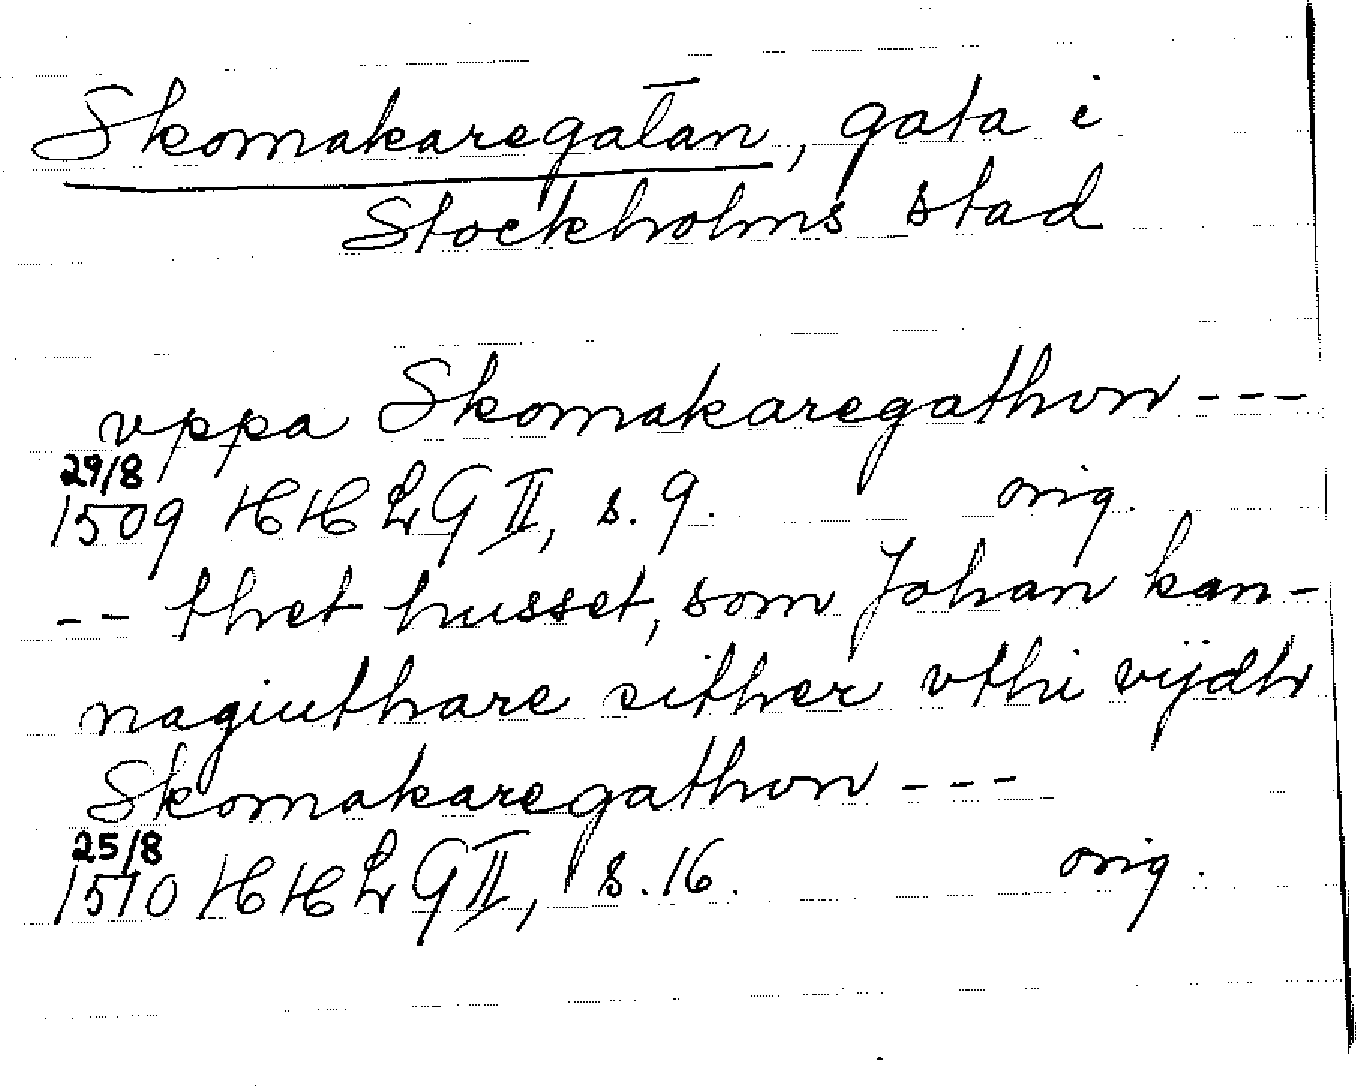 Skomakaregatan, gata i
Stockholms stad
vppa Skomakaregathon ---
29/8
1509 HHLG II, s. 9. orig.
-- thet husset, som Johan kan-
nagiuthare sither vthi vijdh
Skomakaregathon ---
25/8
1510 HHLG II, s. 16. orig.